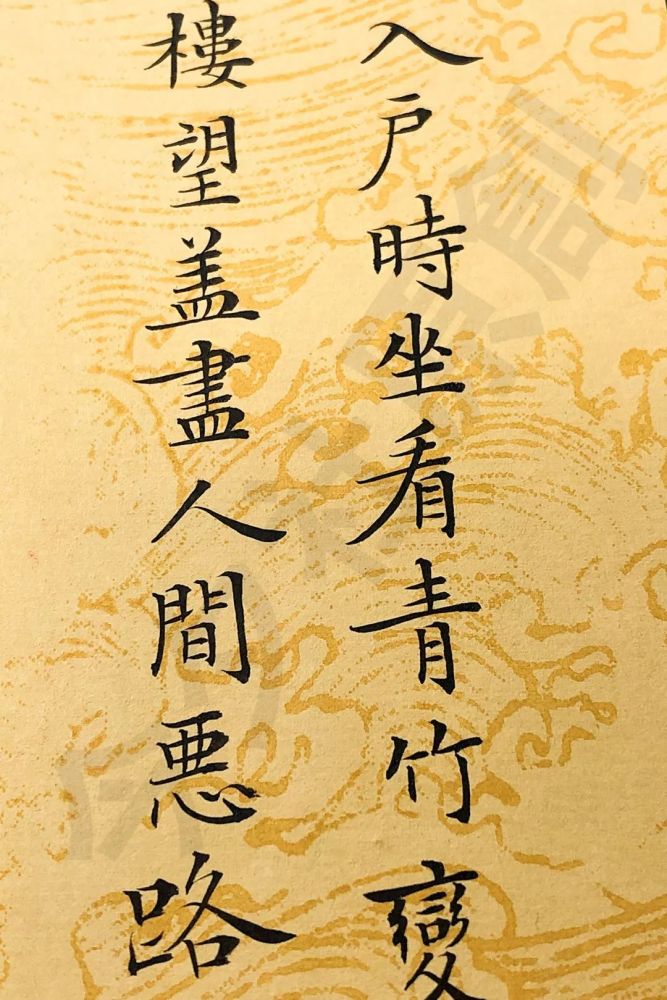 入戶時坐看青竹變
樓望盖盡人間悪路